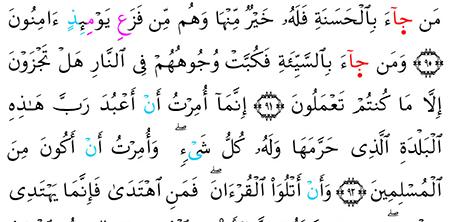 مَن جَآءَ بِالْحَسَنَةِ فَلَهُۥ خَيْرٌ مِّنْهَا وَهُم مِّن فَزَعِ يَوْمَئِذٍ ءَامِنُونَ
﴿٩٠﴾ وَمَن جَآءَ بِالسَّيِّئَةِ فَكُبَّتْ وُجُوهُهُمْ فِى النَّارِ هَلْ تُجْزَوْنَ
إِلَّا مَا كُنتُمْ تَعْمَلُونَ ﴿٩١﴾ إِنَّمَآ أُمِرْتُ أَنْ أَعْبُدَ رَبَّ هَٰذِهِ
الْبَلْدَةِ الَّذِى حَرَّمَهَا وَلَهُۥ كُلُّ شَىْءٍ ۖ وَأُمِرْتُ أَنْ أَكُونَ مِنَ
الْمُسْلِمِينَ ﴿٩٢﴾ وَأَنْ أَتْلُوَا۟ الْقُرْءَانَ ۖ فَمَنِ اهْتَدَىٰ فَإِنَّمَا يَهْتَدِى